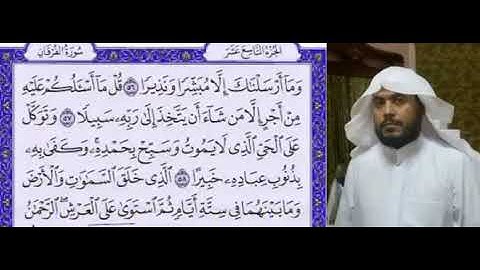 الجزء التاسع عشر
سورة الفرقان
وَمَآ أَرْسَلْنَٰكَ إِلَّا مُبَشِّرًا وَنَذِيرًا ۝٥٦ قُلْ مَآ أَسْـَٔلُكُمْ عَلَيْهِ
مِنْ أَجْرٍ إِلَّا مَن شَآءَ أَن يَتَّخِذَ إِلَىٰ رَبِّهِۦ سَبِيلًا ۝٥٧ وَتَوَكَّلْ
عَلَى ٱلْحَىِّ ٱلَّذِى لَا يَمُوتُ وَسَبِّحْ بِحَمْدِهِۦ ۚ وَكَفَىٰ بِهِۦ
بِذُنُوبِ عِبَادِهِۦ خَبِيرًا ۝٥٨ ٱلَّذِى خَلَقَ ٱلسَّمَٰوَٰتِ وَٱلْأَرْضَ
وَمَا بَيْنَهُمَا فِى سِتَّةِ أَيَّامٍ ثُمَّ ٱسْتَوَىٰ عَلَى ٱلْعَرْشِ ۚ ٱلرَّحْمَٰنُ